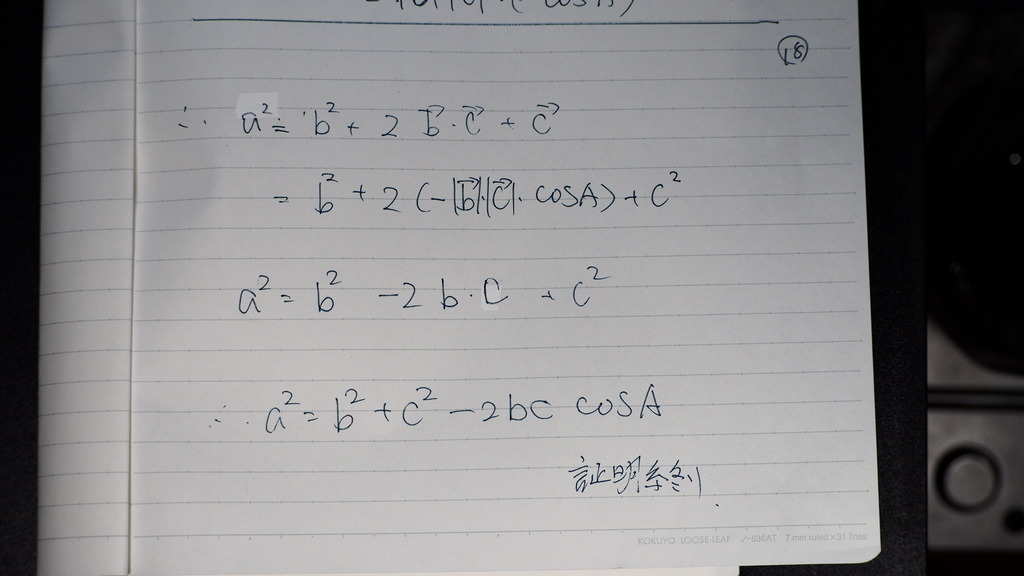 ⑱
∴ a² = b² + 2 b⃗・c⃗ + c⃗
= b² + 2 (-|b⃗||c⃗|・cosA) + c²
a² = b² -2 b・c + c²
∴ a² = b² + c² - 2bc cosA
証明終り
KOKUYO LOOSE-LEAF ノ-836AT 7 mm ruled×31 lines